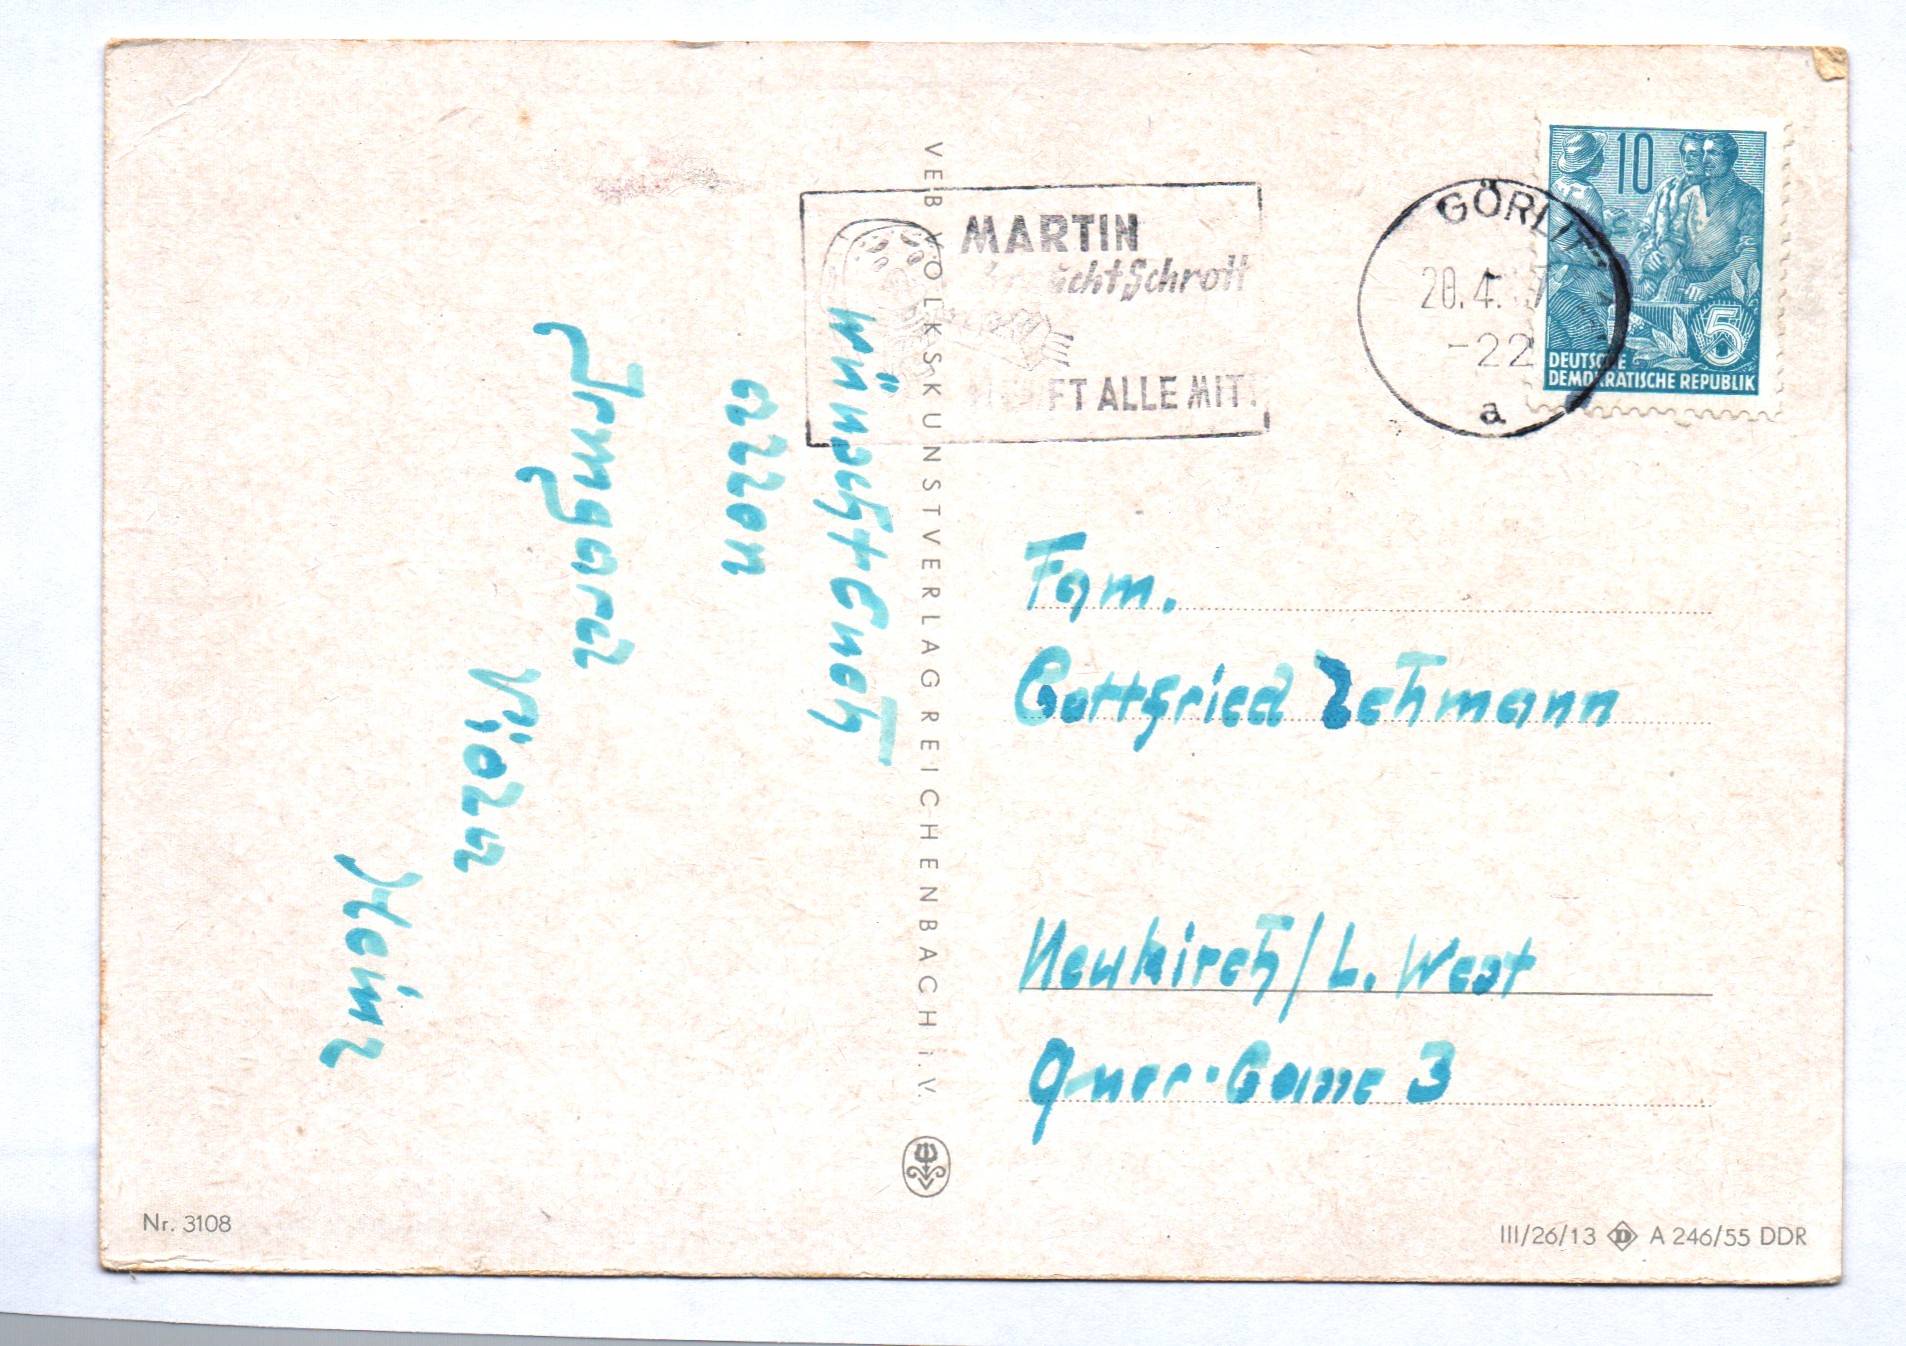 wünscht Euch
allen
Irmgard
Viola
Heinz
VEB VOLKSKUNSTVERLAG REICHENBACH i. V.
MARTIN
braucht Schrott
HELFT ALLE MIT!
GÖRLITZ
20.4.
-22
a
10
5
DEUTSCHE
DEMOKRATISCHE REPUBLIK
Fam.
Gottfried Lehmann
Neukirch/L. West
Quer-Gasse 3
Nr. 3108
III/26/13 D A 246/55 DDR